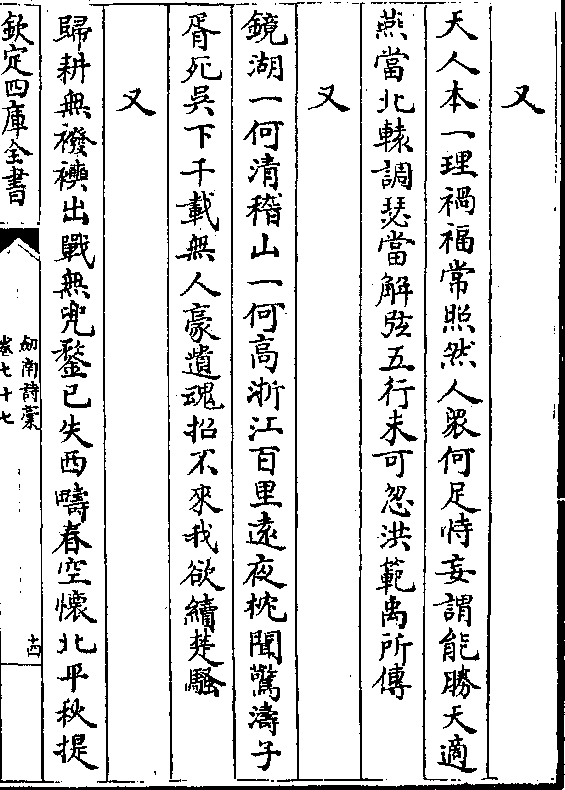 又
天人本一理禍福常照然人衆何足恃妄謂能勝天適
燕當北轅調瑟當解弦五行未可忽洪範禹所傳
又
鏡湖一何清稽山一何高浙江百里遠夜枕聞驚濤子
胥死吳下千載無人豪遺魂招不來我欲續楚騷
又
歸耕無襏襫出戰無兜鍪已失西疇春空懷北平秋提
欽定四庫全書
劒南詩藁
卷七十七
十四